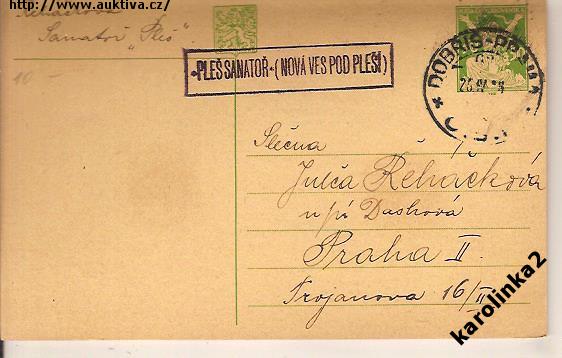 http://www.auktiva.cz/
Řeháčková
Sanatoř „Pleš"
10 -
PLEŠ SANATOŘ (NOVÁ VES POD PLEŠÍ)
DOBŘÍŠ-PRAHA
Slečna
Julča Řeháčková
u pí Dushová
Praha II.
Trojanova 16/II
karolinka2